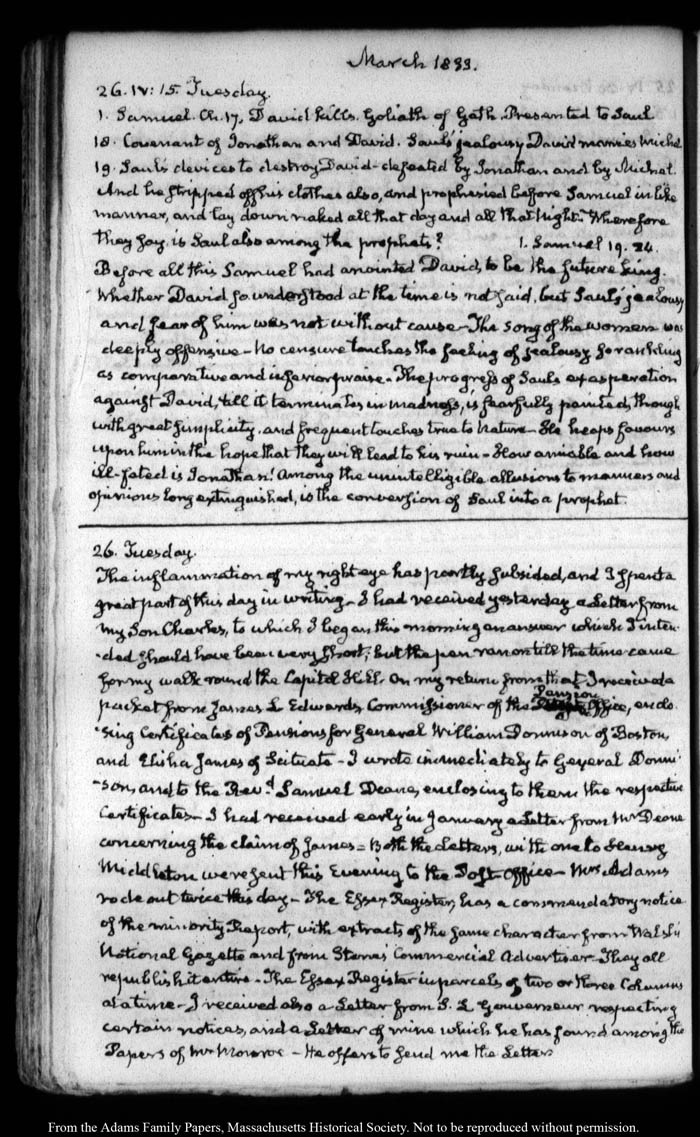 March 1833.
26. IV: 15. Tuesday.
1. Samuel. Ch. 17. David kills Goliath of Gath. Presented to Saul
18. Covenant of Jonathan and David. Saul's jealousy David marries Michal
19. Saul's devices to destroy David - defeated by Jonathan and by Michal.
And he stripped off his clothes also, and prophesied before Samuel in like
manner, and lay down naked all that day and all that Night. Wherefore
they say, is Saul also among the prophets? 1. Samuel 19. 24.
Before all this Samuel had anointed David, to be the future king.
Whether David so understood at the time is not said, but Saul's jealousy
and fear of him was not without cause - The song of the women was
deeply offensive - No censure touches the feeling of jealousy so rankling
as comparative and inferior praise - The progress of Saul's exasperation
against David, till it terminates in madness, is fearfully painted, though
with great simplicity, and frequent touches true to Nature - He heaps favours
upon him in the hope that they will lead to his ruin - How amiable and how
ill-fated is Jonathan! Among the unintelligible allusions to manners and
opinions long extinguished, is the conversion of Saul into a prophet.
26. Tuesday.
The inflammation of my right eye has partly subsided, and I spent a
great part of this day in writing - I had received yesterday a Letter from
my Son Charles, to which I began this morning an answer which I inten-
-ded should have been very short; but the pen ran on till the time came
for my walk round the Capitol Hill. On my return from that I received a
packet from James L Edwards, Commissioner of the Pension Office, enclo-
-sing Certificates of Pensions for General William Donnison of Boston,
and Elisha James of Scituate - I wrote immediately to General Donni-
-son, and to the Rev.d Samuel Deane, enclosing to them the respective
Certificates - I had received early in January a Letter from Mr Deane
concerning the claim of James = Both the Letters, with one to Henry
Middleton were sent this Evening to the Post-Office - Mrs Adams
rode out twice this day - The Essex Register, has a commendatory notice
of the minority Report, with extracts of the same character from Walsh's
National Gazette and from Stone's Commercial Advertiser - They all
republish it entire - The Essex Register in parcels of two or three Columns
at a time - I received also a Letter from S. L Gouverneur respecting
certain notices, and a Letter of mine which he has found among the
Papers of Mr Monroe - He offers to send me the Letters
From the Adams Family Papers, Massachusetts Historical Society. Not to be reproduced without permission.